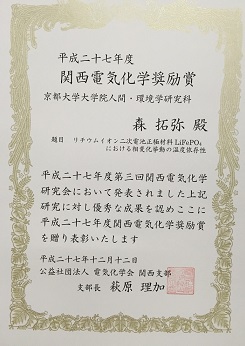 平成二十七年度
関西電気化学奨励賞
京都大学大学院人間・環境学研究科
森 拓弥 殿
題目 リチウムイオン二次電池正極材料LiFePO₄
における相変化挙動の温度依存性
平成二十七年度第三回関西電気化学
研究会において発表されました上記
研究に対し優秀な成果を認めここに
平成二十七年度関西電気化学奨励賞
を贈り表彰いたします
平成二十七年十二月十二日
公益社団法人 電気化学会 関西支部
支部長 萩原 理加